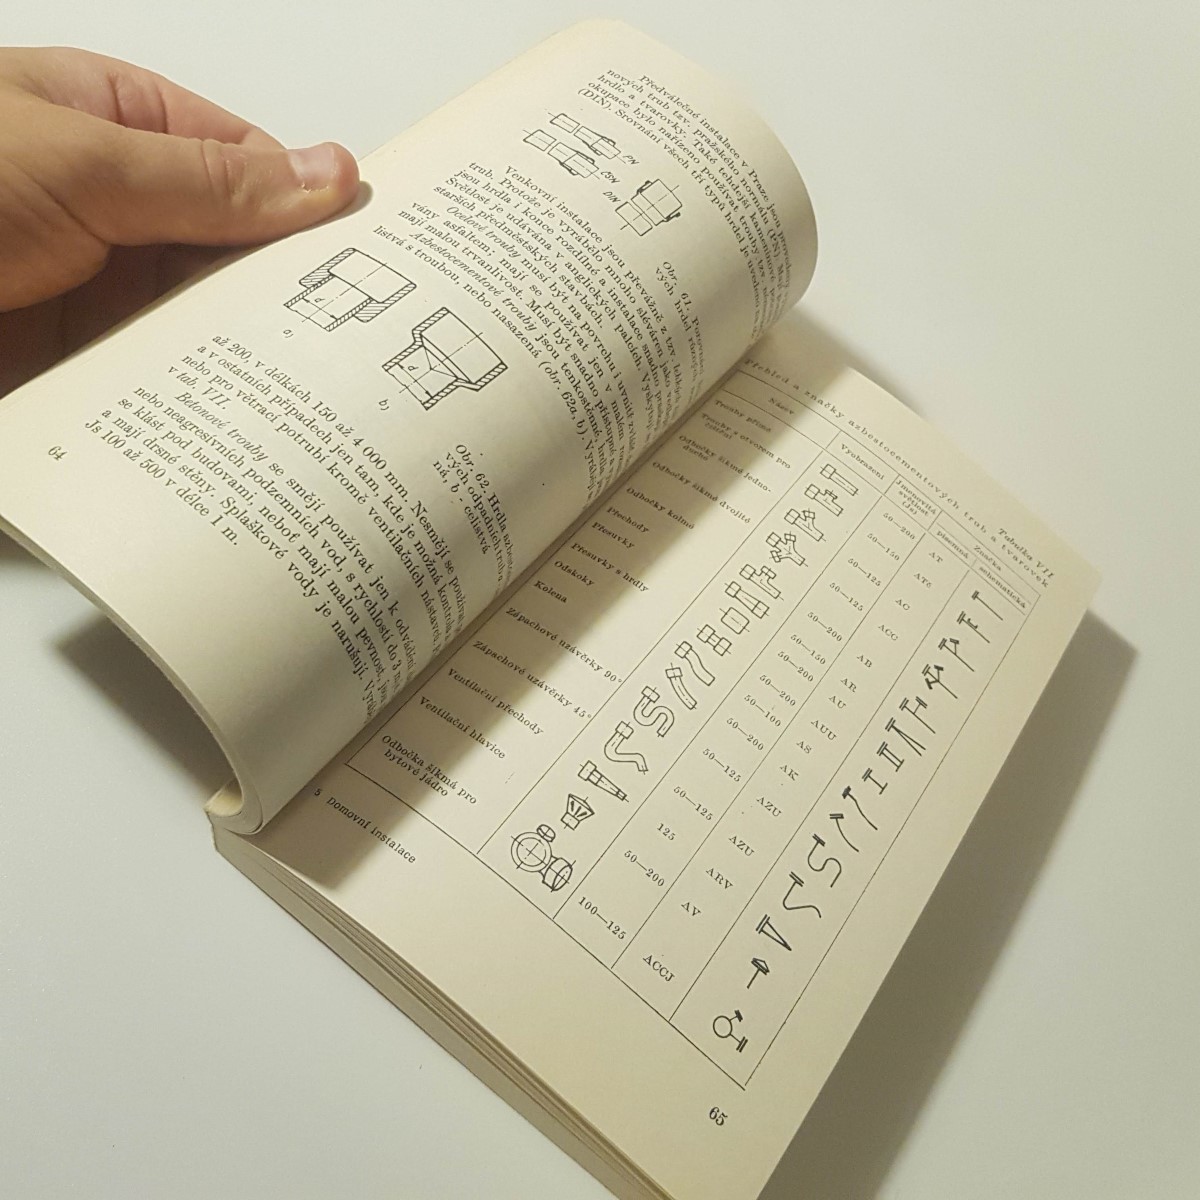 Předválečné instalace v Praze jsou
nových trub tzv. pražského normálu (PN).
hrdlo a tvarovky. Také tehdejší kameninové
okupace bylo nařízeno používat trouby tzv.
(DIN). Srovnání všech tří typů hrdel je uvedeno
PN
ČSN
DIN
Obr. 61.
vých hrdel
Venkovní instalace jsou převážně z tzv. lehkých
trub. Protože je vyrábělo mnoho sléváren jako
jsou hrdla i konce rozdílné a instalace snadno
Světlost je udávána v anglických palcích.
starších předměstských stavbách.
Ocelové trouby musí být na povrchu i uvnitř
vány asfaltem; mají se používat jen v malém
mají malou trvanlivost. Musí být snadno přístupné
Azbestocementové trouby jsou tenkostěnné,
listvá s troubou, nebo nasazená (obr. 62a, b).
a)
b)
Obr. 62. Hrdla
vých odpadních
ná, b - celistvá
až 200, v délkách 150 až 4 000 mm. Nesmějí se
a v ostatních případech jen tam, kde je možná
nebo pro větrací potrubí kromě ventilačních nástavců,
v tab. VII.
Betonové trouby se smějí používat jen k odvádění
nebo neagresívních podzemních vod, s rychlostí do 3
se klást pod budovami, neboť mají malou pevnost,
a mají drsné stěny. Splaškové vody je narušují.
Js 100 až 500 v délce 1 m.
64
Tabulka VII
Přehled a značky azbestocementových trub a tvarovek
Název Vyobrazení Jmenovitá světlost (Js) Značka
písemná schematická
Trouby přímé 50—200 AT
Trouby s otvorem pro čištění 50—150 ATč
Odbočky šikmé jednoduché 50—125 AC
Odbočky šikmé dvojité 50—125 ACC
Odbočky kolmé 50—200 AB
Přechody 50—150 AR
Přesuvky 50—200 AU
Přesuvky s hrdly 50—100 AUU
Odskoky 50—200 AS
Kolena 50—125 AK
Zápachové uzávěrky 90° 50—125 AZU
Zápachové uzávěrky 45° 125 AZU
Ventilační přechody 50—200 ARV
Ventilační hlavice AV
Odbočka šikmá pro bytové jádro 100—125 ACCJ
5 Domovní instalace
65